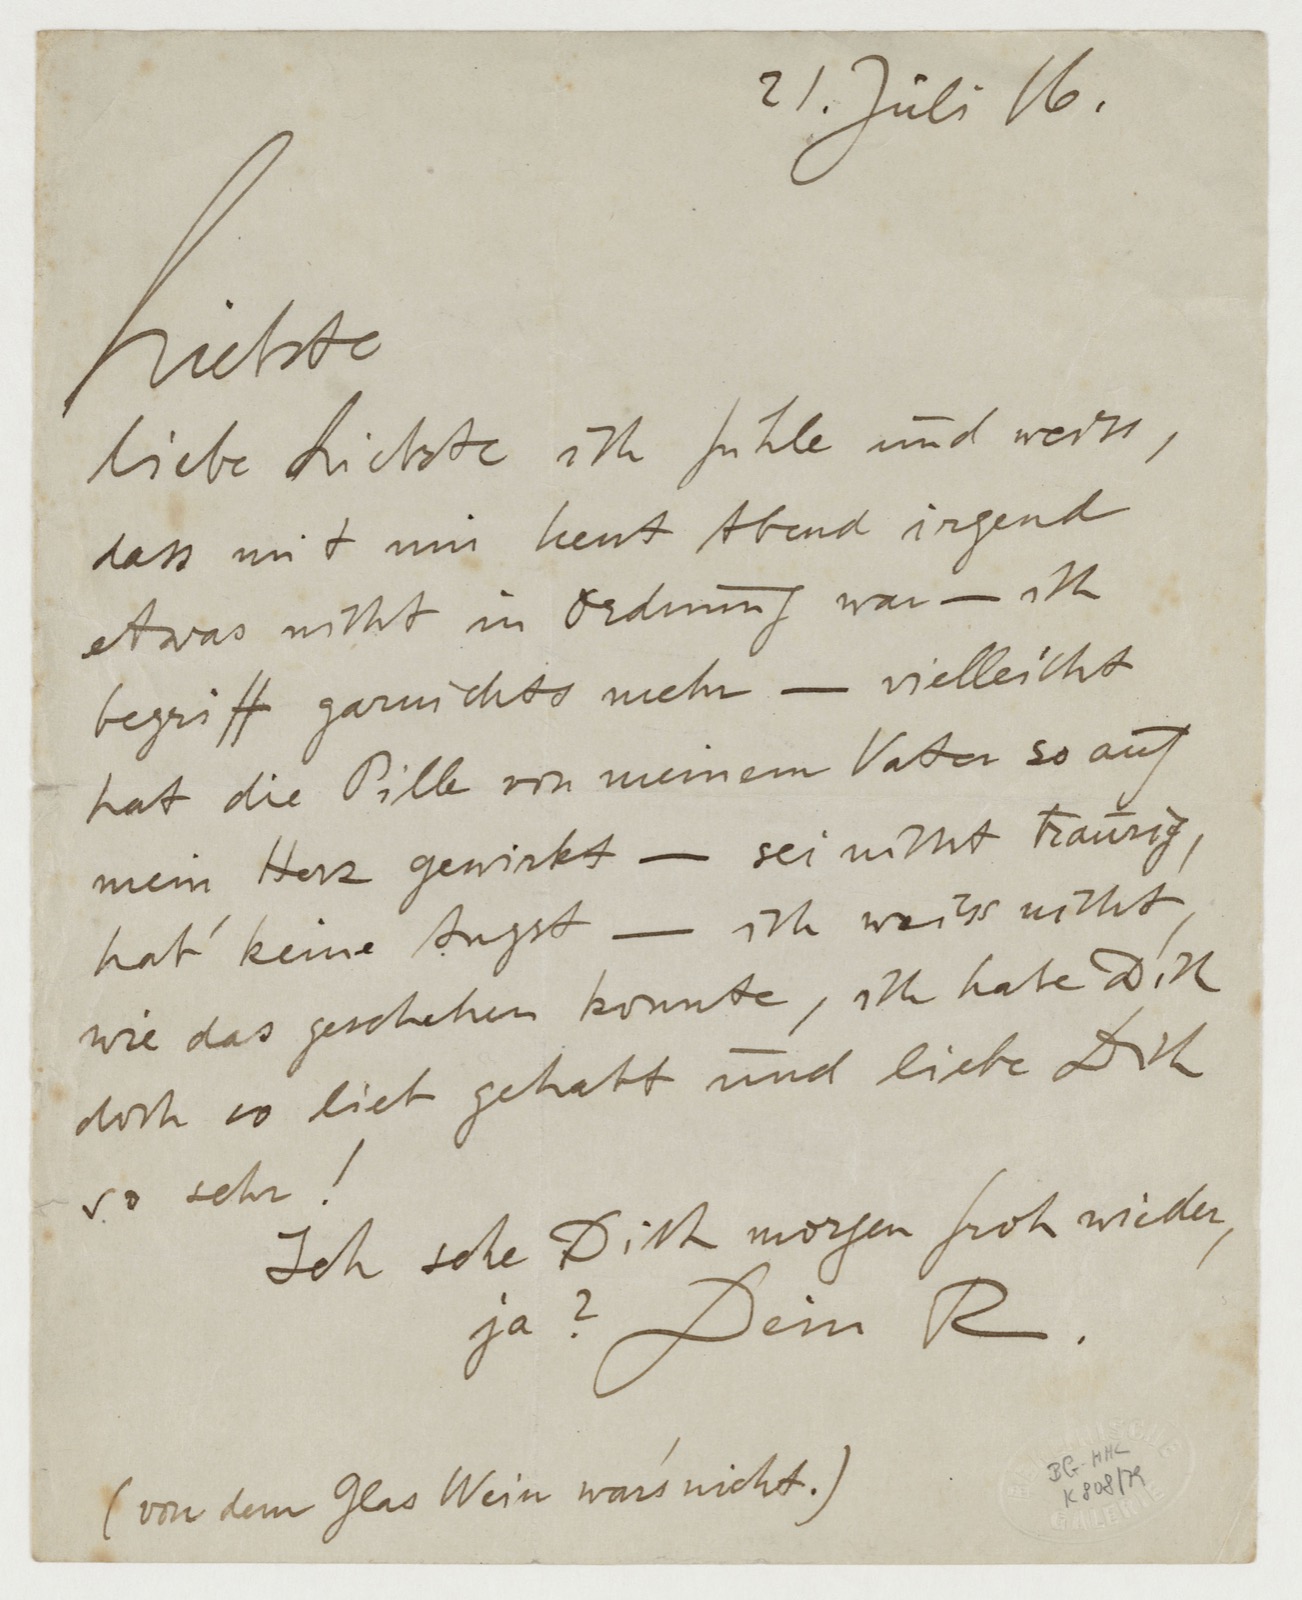 21. Juli 16.
Liebste
liebe Liebste ich fühle und weiss,
dass mit mir heut Abend irgend
etwas nicht in Ordnung war — ich
begriff garnichts mehr — vielleicht
hat die Pille von meinem Vater so auf
mein Herz gewirkt — sei nicht traurig,
hab' keine Angst — ich weiss nicht,
wie das geschehen konnte, ich habe Dich
doch so lieb gehabt und liebe Dich
so sehr!
Ich sehe Dich morgen froh wieder,
ja? Dein R.
(von dem Glas Wein war's nicht.)
BERLINISCHE
GALERIE
BG-HHC
K 808/79